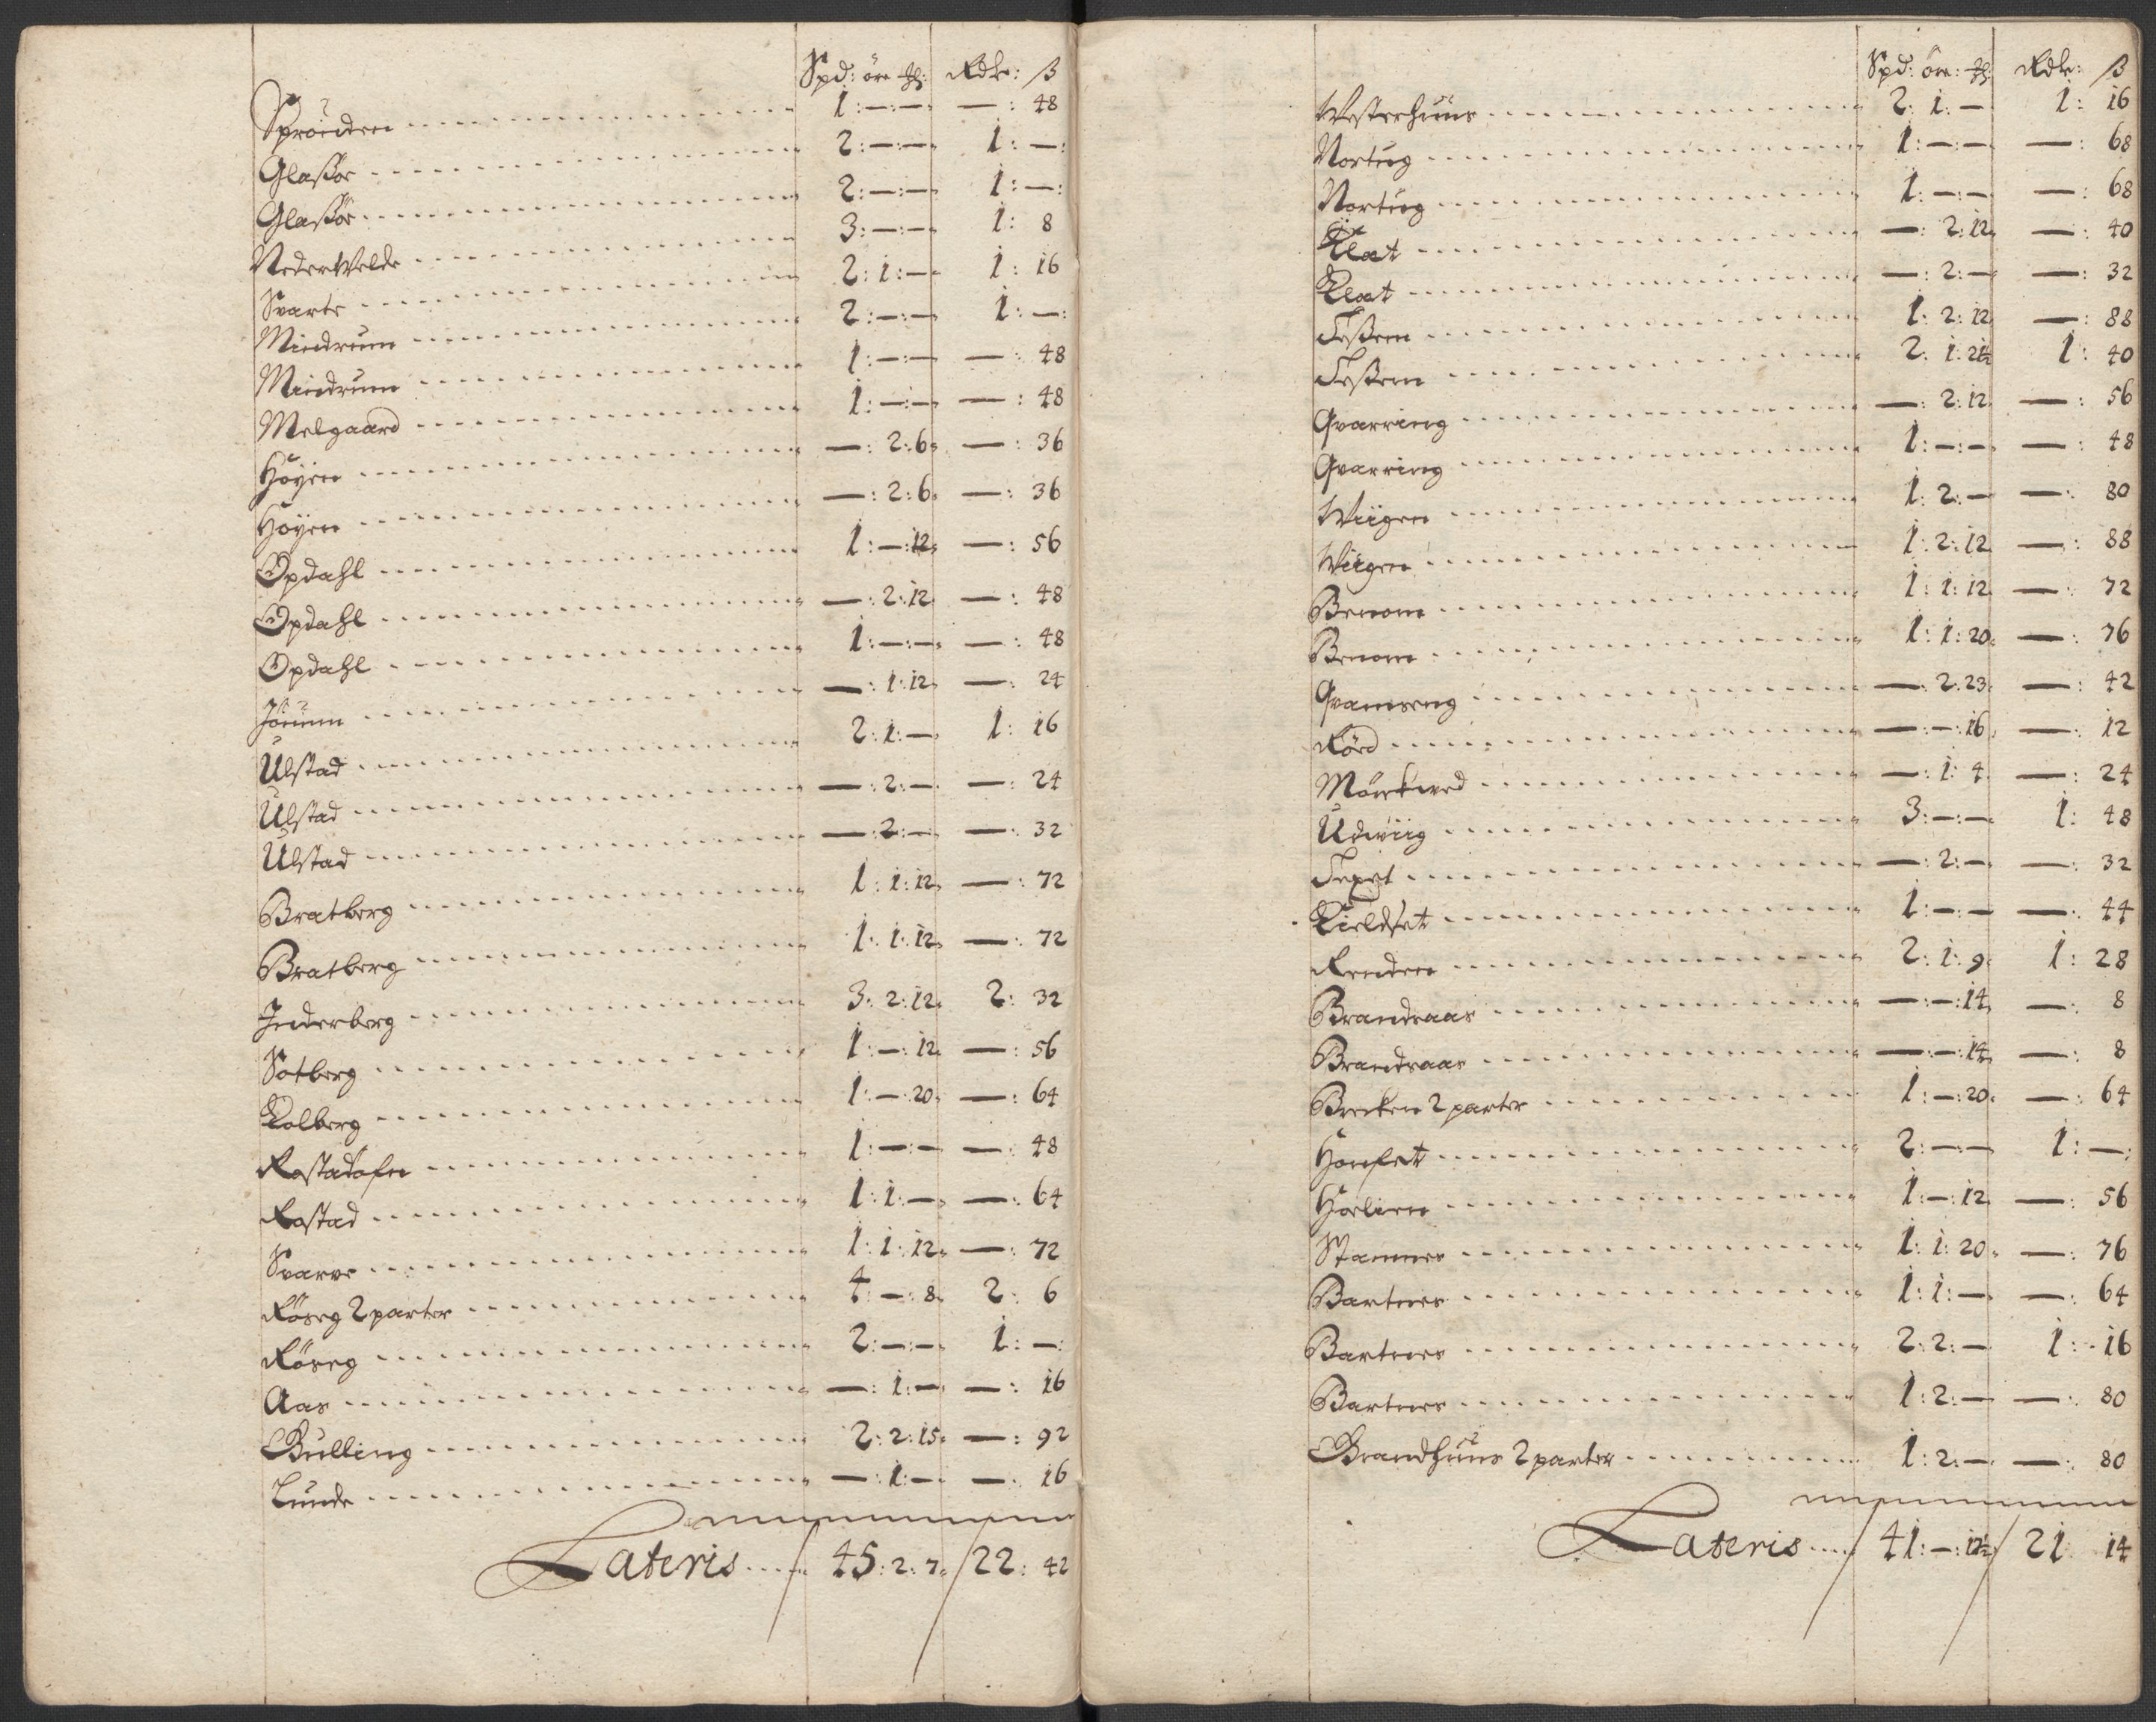 Spd: öre ꝉ: Rdlr: ß
Spröuden 1:—:— —: 48
Glaßöe 2:—:— 1:—:
Glaßöe 2:—:— 1:—:
NederWelde 3:—:— 1: 8
Svarte 2:1:— 1: 16
Mindrum 2:—:— 1:—:
Mindrum 1:—:— —: 48
Melgaard 1:—:— —: 48
Höyen —:2:6 —: 36
Höyen —:2:6 —: 36
Opdahl 1:—:12 —: 56
Opdahl —:2:12 —: 48
Opdahl 1:—:— —: 48
Jörum —:1:12 —: 24
Ulstad 2:1:— 1: 16
Ulstad —:2:— —: 24
Ulstad —:2:— —: 32
Bratberg 1:1:12 —: 72
Bratberg 1:1:12 —: 72
Inderberg 3:2:12 2: 32
Sotberg 1:—:12 —: 56
Kolberg 1:—:20 —: 64
Rostadöfre 1:—:— —: 48
Rostad 1:1:— —: 64
Svarve 1:1:12 —: 72
Röseg 2 parter 4:—:8 2: 6
Röseg 2:—:— 1:—:
Aas —:1:— —: 16
Bulling 2:2:15 —: 92
Lunde —:1:— —: 16
Lateris 45:2:7 / 22: 42
Spd: öre: ꝉ: Rdlr: ß
Westerhuus 2:1:— 1: 16
Nortug 1:—:— —: 68
Nortug 1:—:— —: 68
Elat —:2:12 —: 40
Elat —:2:— —: 32
Feßem 1:2:12 —: 88
Feßem 2:1:21½ 1: 40
Qvarring —:2:12 —: 56
Qvarring 1:—:— —: 48
Wiigen 1:2:— —: 80
Wiigen 1:2:12 —: 88
Benom 1:1:12 —: 72
Benom 1:1:20 —: 76
Qvamseng —:2:23 —: 42
Rörd —:—:16 —: 12
Mörkved —:1:4 —: 24
Udwiig 3:—:— 1: 48
Texet —:2:— —: 32
Kieldset 1:—:— —: 44
Renden 2:1:9 1: 28
Brandsaas —:—:14 —: 8
Brandsaas —:—:14 —: 8
Brecken 2 parter 1:—:20 —: 64
Honset 2:—:— 1:—:
Hoelien 1:—:12 —: 56
Stamnes 1:1:20 —: 76
Bartnes 1:1:— —: 64
Bartnes 2:2:— 1: 16
Bartnes 1:2:— —: 80
Brandhuus 2 parter 1:2:— —: 80
Lateris 41:—:12½ / 21 14